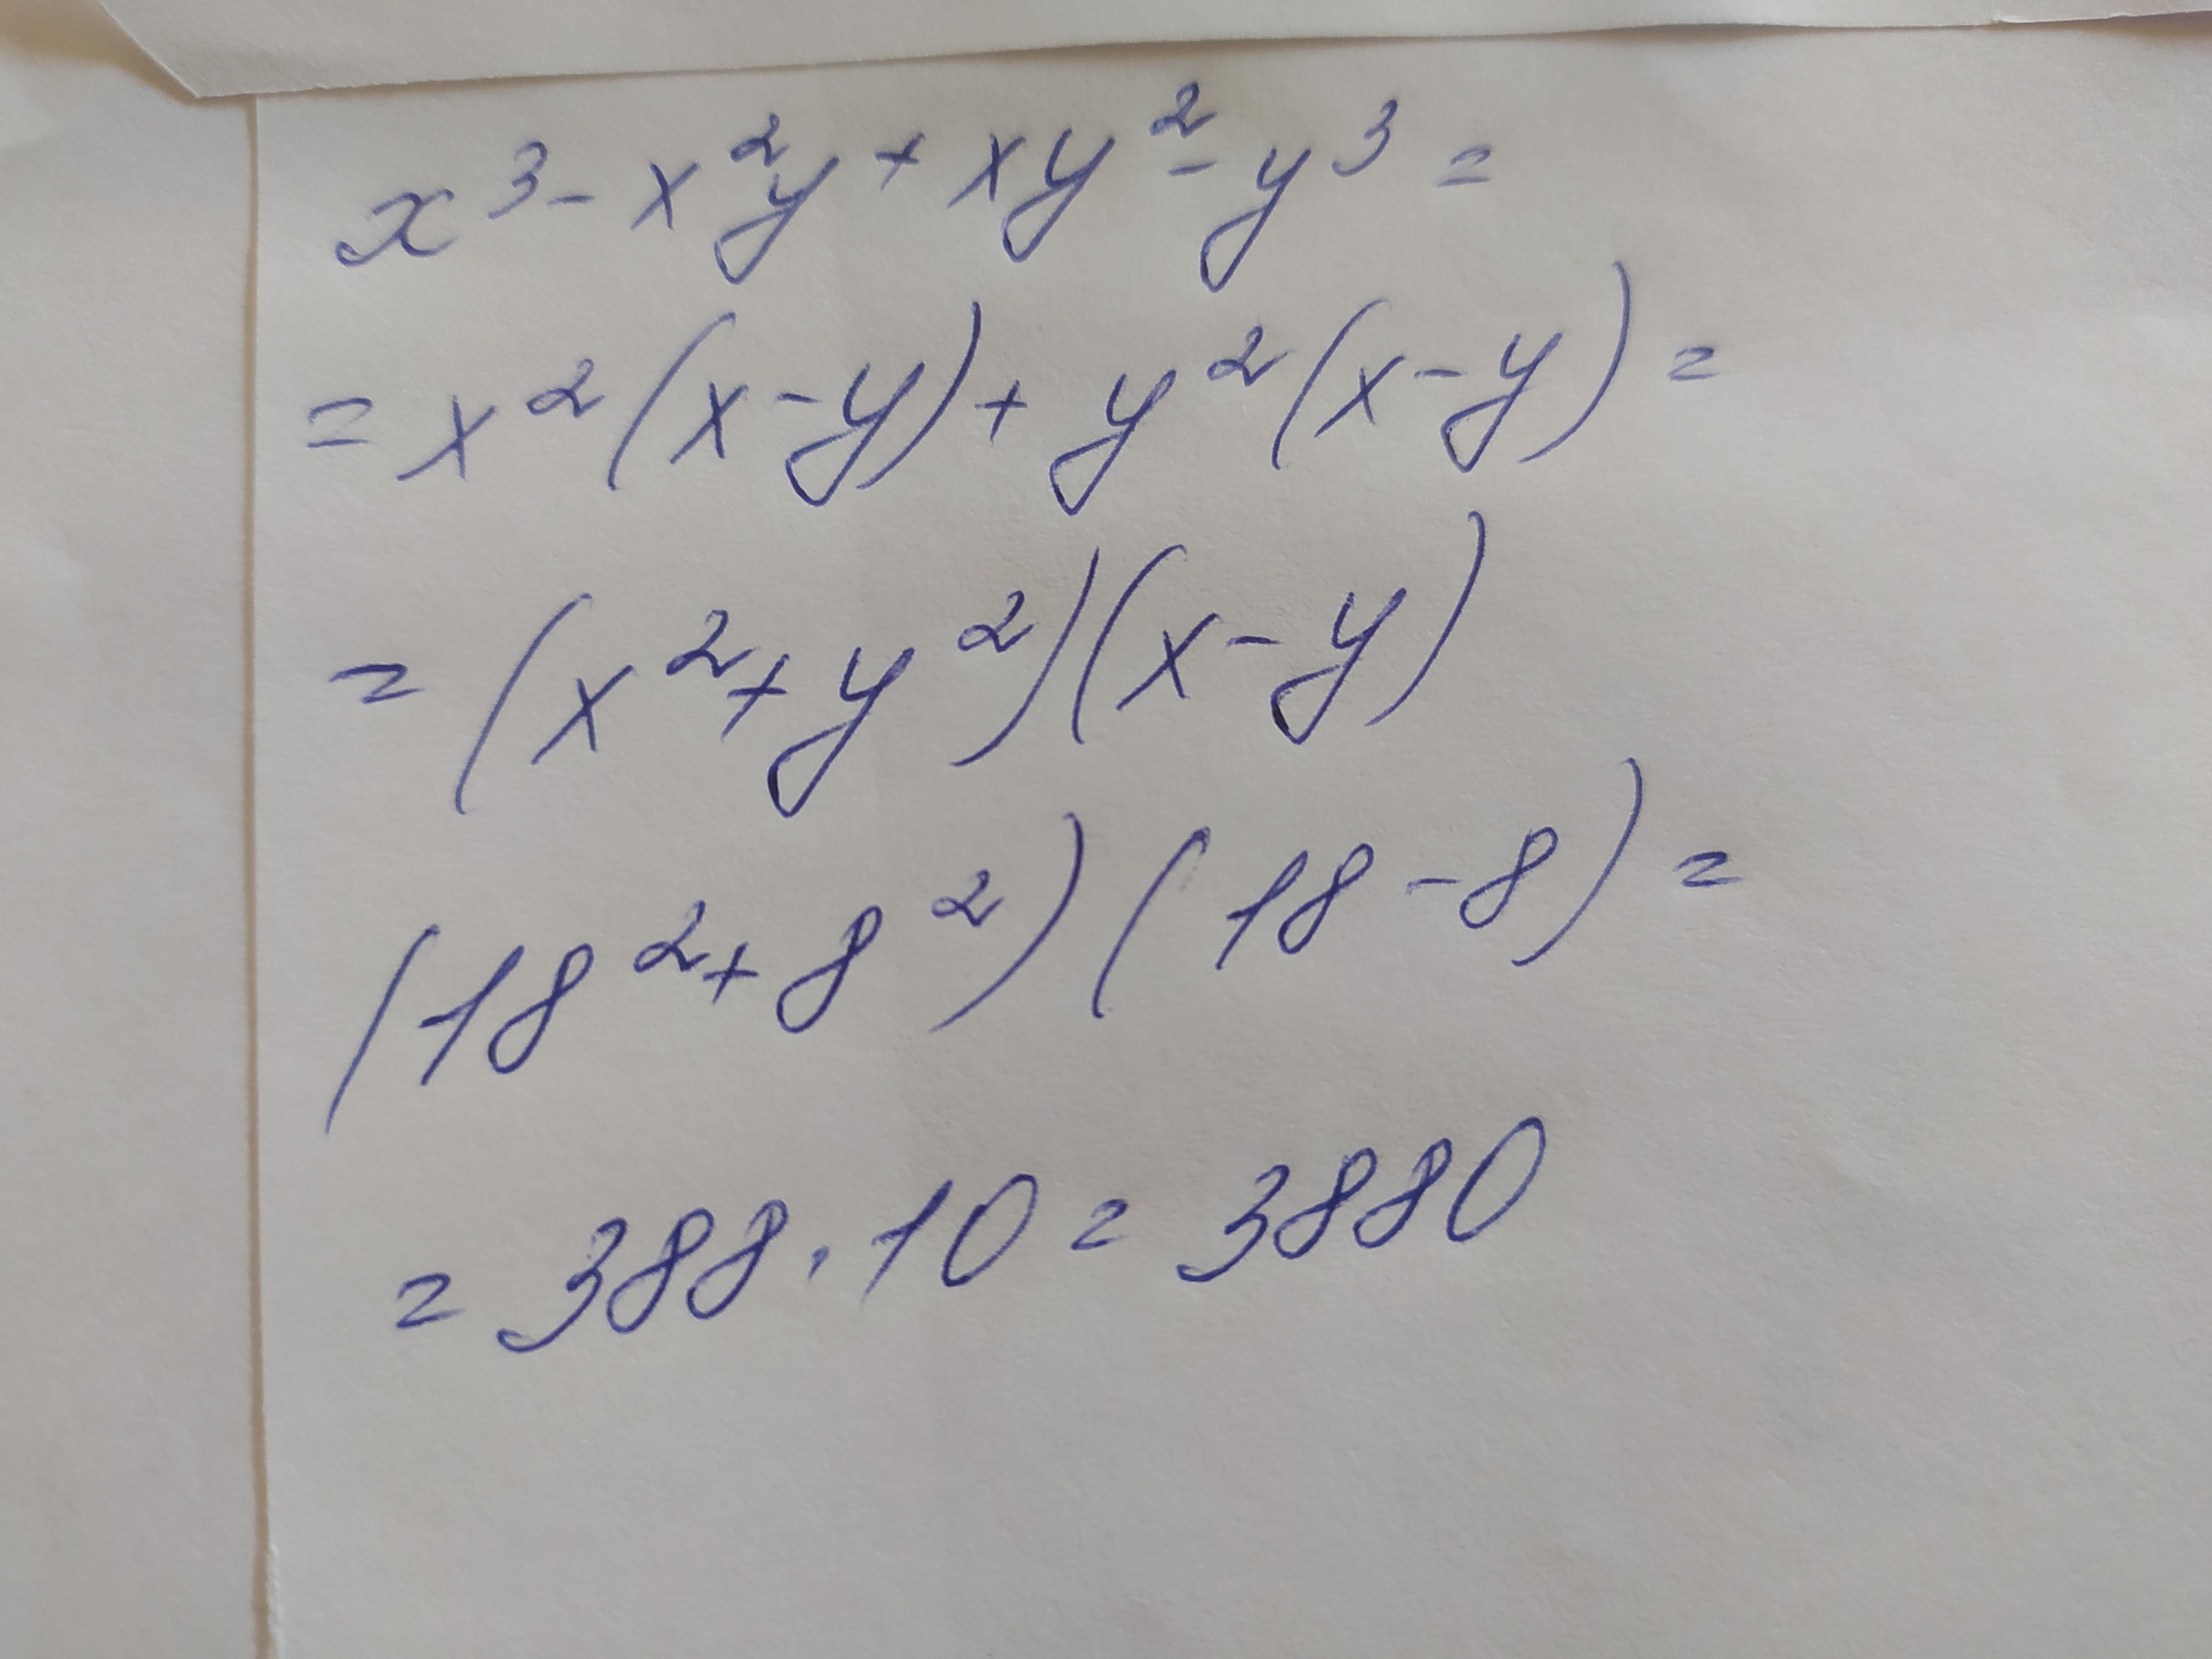 x³ - x²y + xy² - y³ =
= x²(x - y) + y²(x - y) =
= (x² + y²)(x - y)
(18² + 8²)(18 - 8) =
= 388 · 10 = 3880